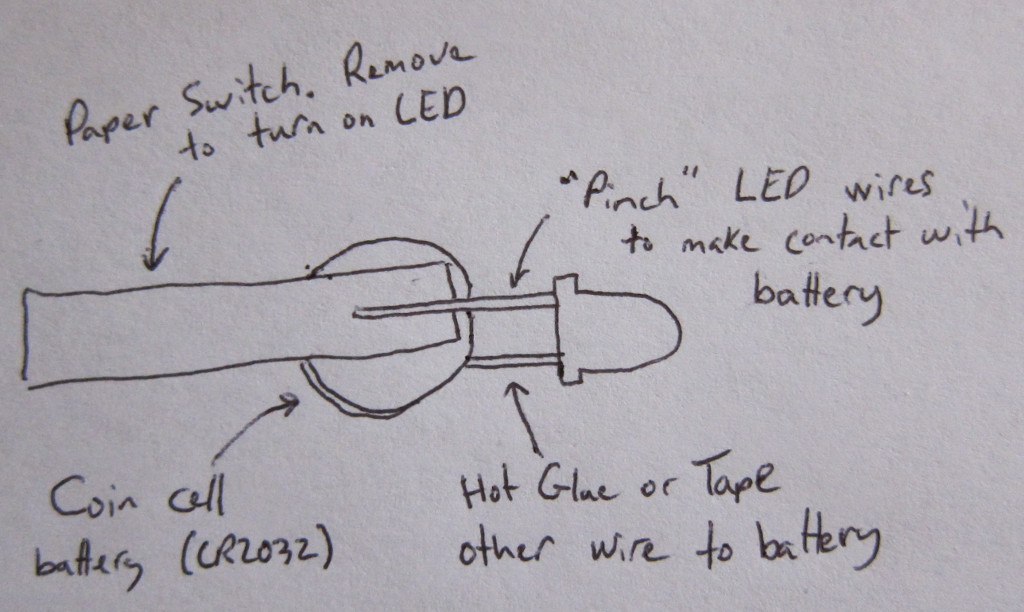 Paper Switch. Remove
to turn on LED
"Pinch" LED wires
to make contact with
battery
Coin cell
battery (CR2032)
Hot Glue or Tape
other wire to battery